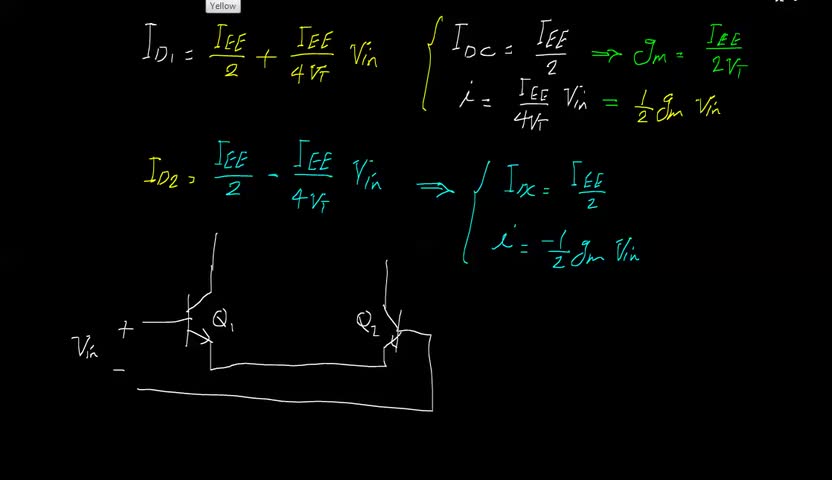 Yellow
I_D1 = I_EE/2 + I_EE/4V_T V_in { I_DC = I_EE/2 ⇒ g_m = I_EE/2V_T
i = I_EE/4V_T V_in = 1/2 g_m V_in
I_D2 = I_EE/2 - I_EE/4V_T V_in ⇒ { I_DC = I_EE/2
i = -1/2 g_m V_in
Q_1 Q_2
V_in + -